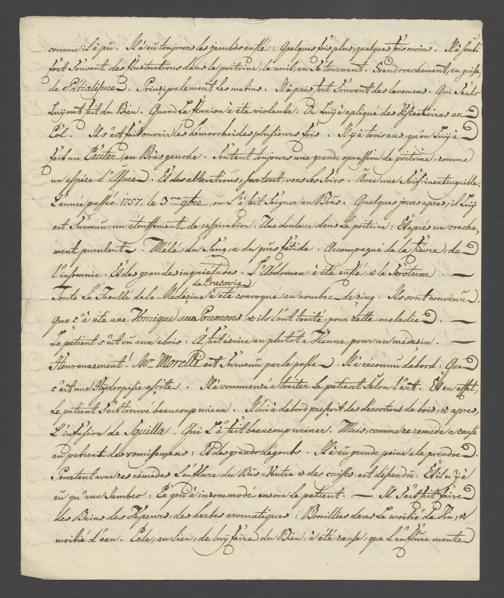 comme il a pû. Il a eû toujours les jambes enflé: quelques fois plus, quelques fois moins. Il a
fort souvent des dans la poitrine, la nuit, en se tournant. Grand crachement, en guise
de Principalement les matins. Il a pris fort souvent des lavemens. Qui
Luy ont fait du Bien. Quand la fluxion a été violante. On Luy a apliqué des au
Col. Il s'est fait ouvrir les hémorrhoides plusieurs fois. Il y a trois ans, qu'on Luy a
fait un Cautère, au Bras gauche. Sentant toujours une grande opression de poitrine, comme
un espèce d'Asme. Et des alterations, sur tout, vers les soirs. Avec une Soif inextinguible.
L'année passée 1757. le 3 on L'a fait Saigner au Bras. Quelques jours apres, il Luy
est survenu, un étouffement de respiration: Une douleur dans la poitrine: Et apres un crache-
ment purulent. Mêlé du Sang, & du pus fétide. Accompagné de la fievre, de
l'insomnie: Et des grandes inquietudes. L'Abdomen a été enflé, & le Scrotum.
de Cracovie
Toute la Faculté de la Médecine a été convoqué au nombre de cinq. Ils sont convenû
Que ç'a été une Vomique aux Poumons, & ils l'ont traité, pour cette maladie.
Le patient s'est vû aux abois: A fait venir au plutôt de Vienne, pour un médecin.
Heureusement! Mr. Morelli est survenû par la poste. Il a reconnu d'abord: Que
c'est une Hydropisie ascite. Il a commencé à traiter Le patient selon l'art. Et en effet,
Le patient s'est trouvé beaucoup mieux. Il Luy a d'abord prescrit des décoctions de bois, & apres,
L'infusion de Squilla. Qui L'a fait beaucoup uriner. Mais, comme ce remede a causé
au patient des vomissemens: Et des grands dégouts. Il a eû grande peine à le prendre.
Constant avec ces remedes L'enflure du Bas-Ventre & des cuisses, est disparuë: Et il n'y a
eû qu'aux Jambes: La quelle a incommodé encore le patient. — Il s'est fait faire
des Bains des Vapeurs, des herbes aromatiques: Bouillies dans La moitié de vin, &
moitié d'eau. Cela, au lieu, de Luy faire du Bien, a été cause, que L'enflure monte